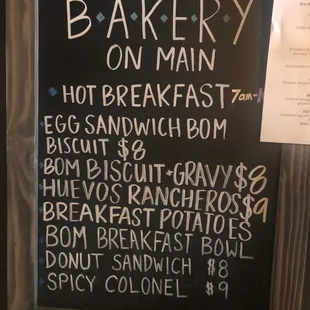 B•A•K•E•R•Y
ON MAIN
• HOT BREAKFAST 7am-
•EGG SANDWICH BOM
BISCUIT $8
•BOM BISCUIT+GRAVY $8
•HUEVOS RANCHEROS $9
BREAKFAST POTATOES
BOM BREAKFAST BOWL
•DONUT SANDWICH $8
•SPICY COLONEL $9